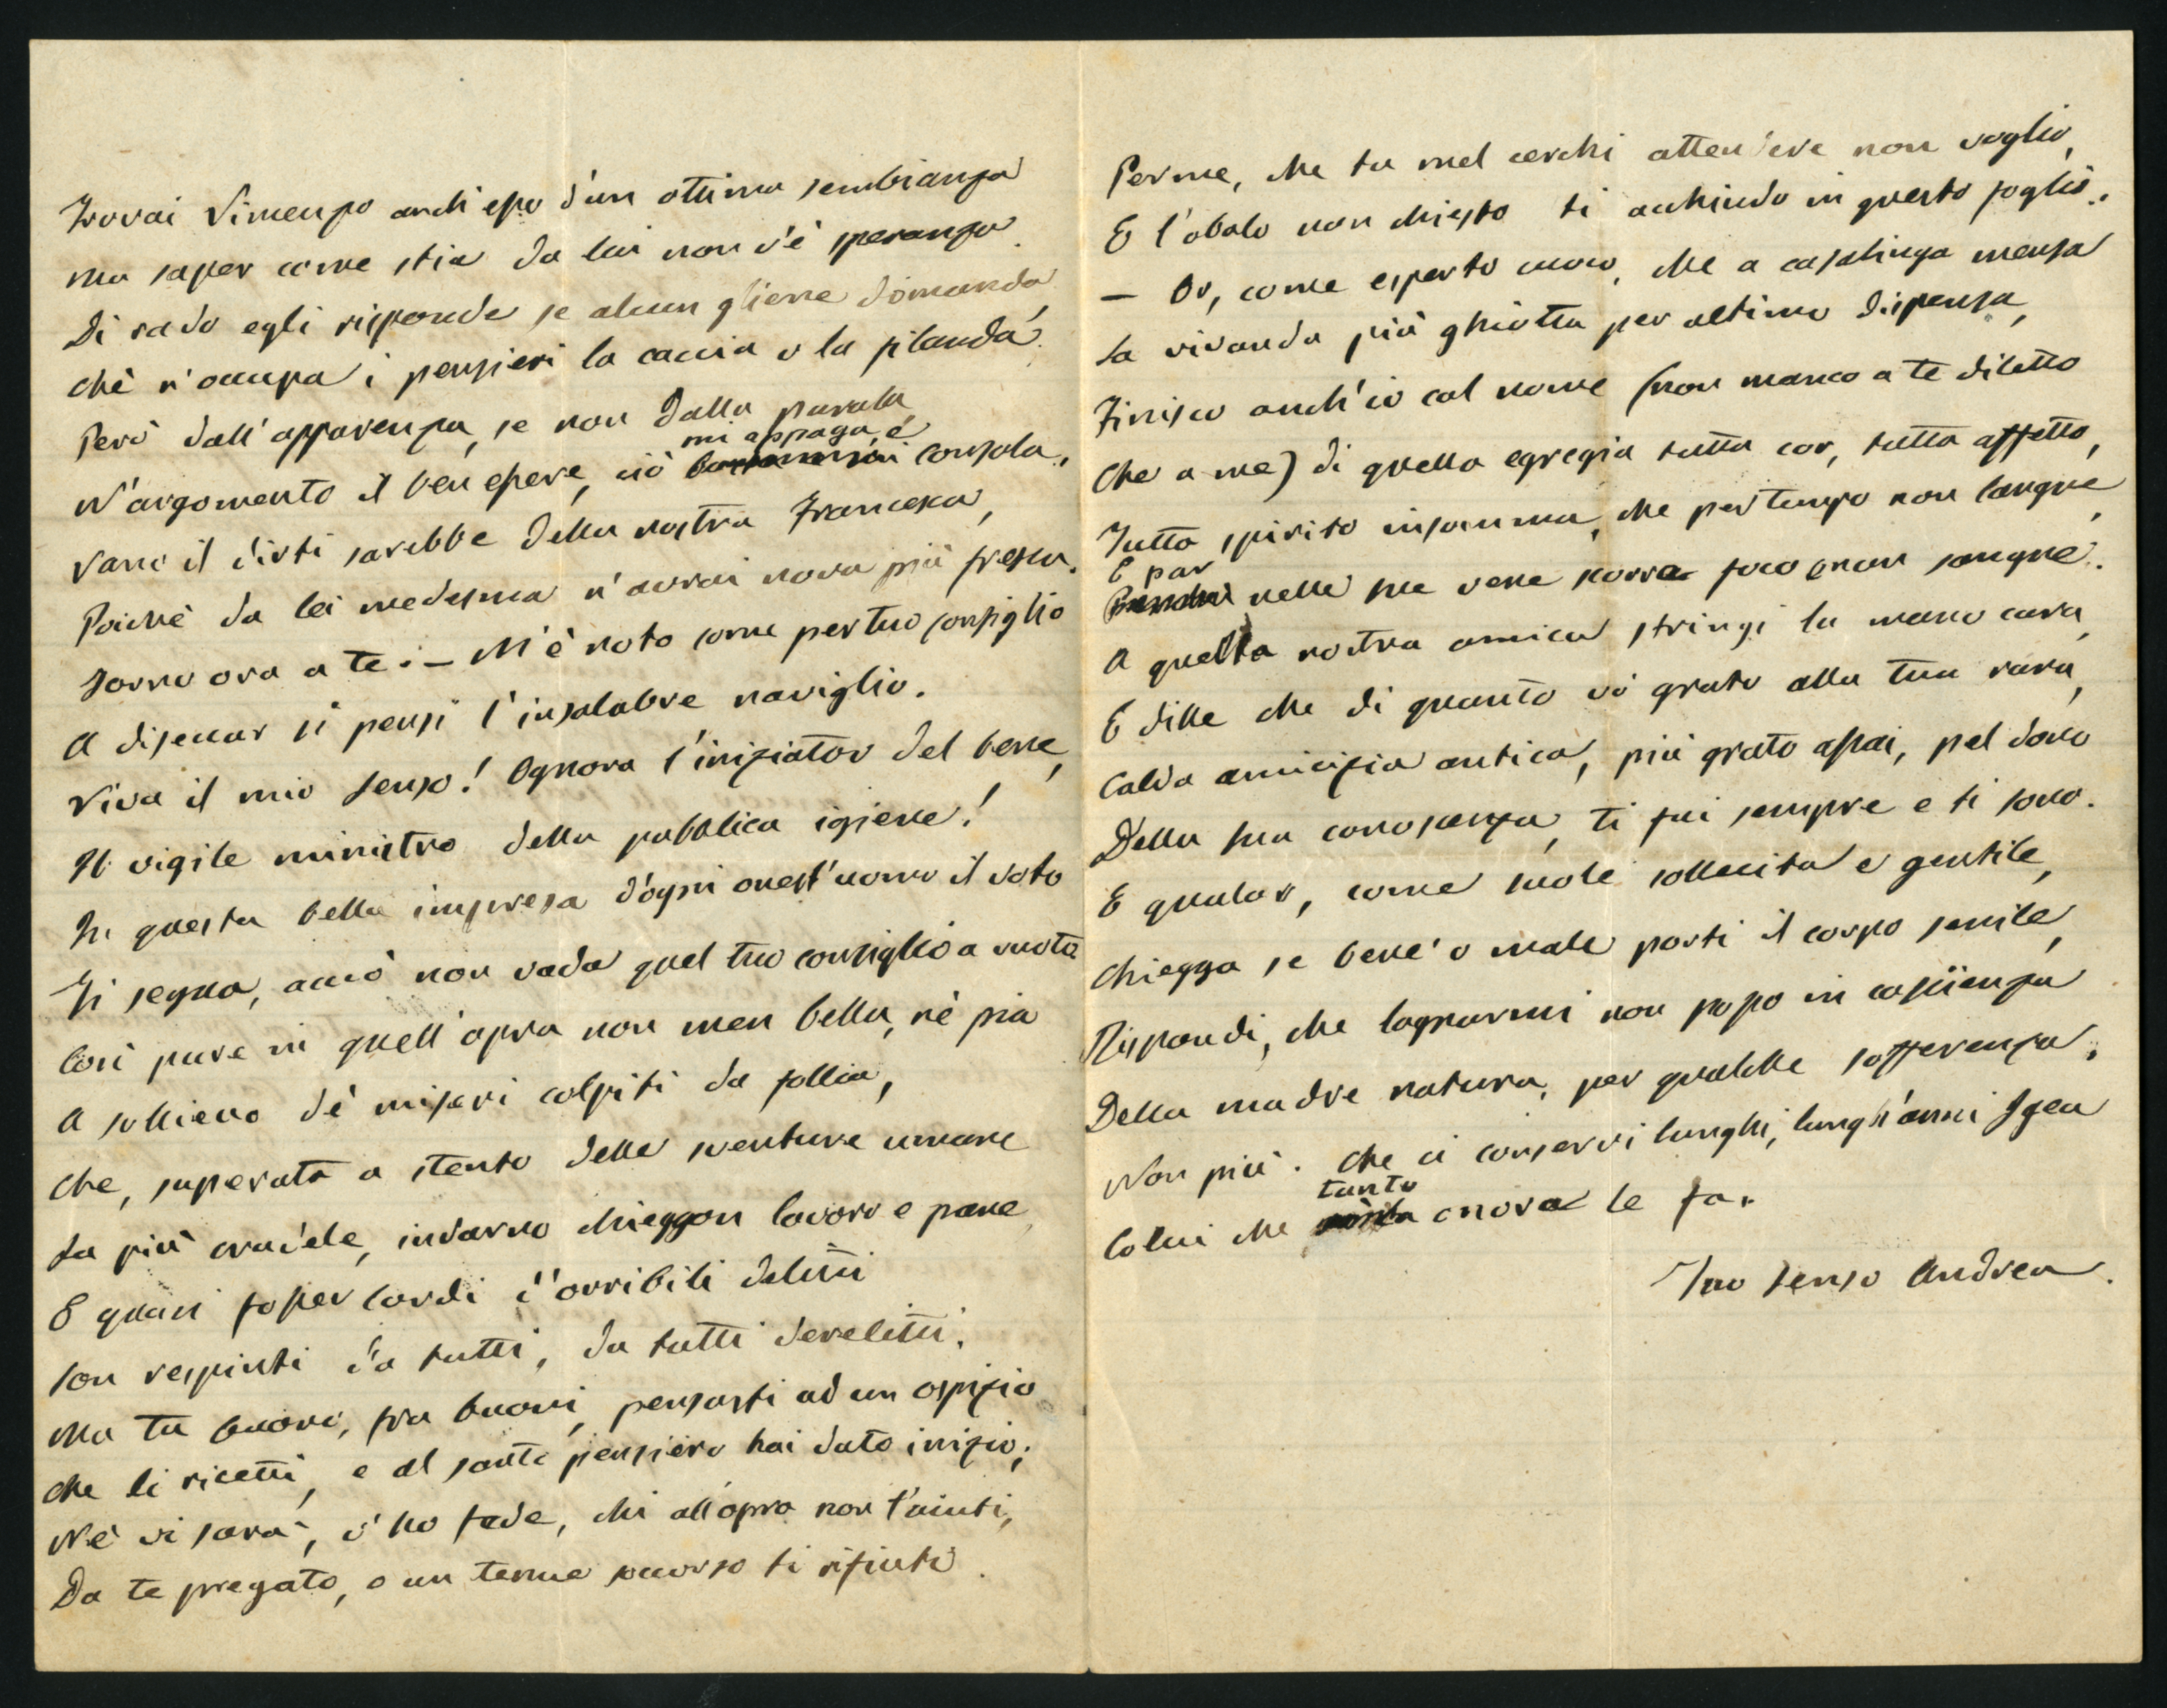 Trovai Vincenzo anch'esso d'un ottima sembianza
ma saper come stia da lui non v'è speranza.
Di rado egli risponde se alcun gliene domanda,
Chè n'occupa i pensieri la caccia o la filanda.
Però dall'apparenza, se non dalla parola,
N'argomento il ben essere, ciò mi appaga, e consola.
Vano il dirti sarebbe della nostra Francesca,
Poichè da lei medesma n'avrai nova più fresca.
Torno ora a te: — M'è noto come per tuo consiglio
A diseccar si pensi l'insalubre naviglio.
Viva il mio Senso! Ognora l'iniziator del bene,
Il vigile ministro della pubblica igiene!
In questa bella impresa d'ogni onest'uomo il voto
Ti segua, acciò non vada quel tuo consiglio a vuoto
Così pure in quell'opra non men bella, nè pia
A sollievo de' miseri colpiti da follia,
Che, superata a stento delle sventure umane
La più crudele, indarno chieggon lavoro e pane,
E quasi fosser lordi d'orribili delitti
Son respinti da tutti, da tutti derelitti.
Ma tu buono, fra buoni, pensasti ad un ospizio
Che li ricetti, e al santo pensiero hai dato inizio;
Nè vi sarà, v'ho fede, chi all'opra non t'aiuti,
Da te pregato, o un tenue soccorso ti rifiuti.
Per me, che tu mel cerchi attendere non voglio,
E l'obolo non chiesto ti acchiudo in questo foglio.
— Or, come esperto cuoco, che a casalinga mensa
La vivanda più ghiotta per ultimo dispensa,
Finisco anch'io col nome (non manco a te diletto
Che a me) di quella egregia tutta cor, tutta affetto,
Tutta spirito insomma, che per tempo non langue,
E par nelle sue vene scorra foco e non sangue.
A quella nostra amica stringi la mano cara,
E dille che di quanto vò grato alla tua rara,
Calda amicizia antica, più grato assai, pel dono
Della sua conoscenza, ti fui sempre e ti sono.
E qualor, come suole sollecita e gentile,
Chiegga se bene o male porti il corpo senile,
Rispondi, che lagnarmi non posso in coscïenza
Della madre natura, per qualche sofferenza.
Non più. Che ci conservi lunghi, lunghi anni Igea
Colui che tanto onora le fa.
Tuo Senso Andrea.